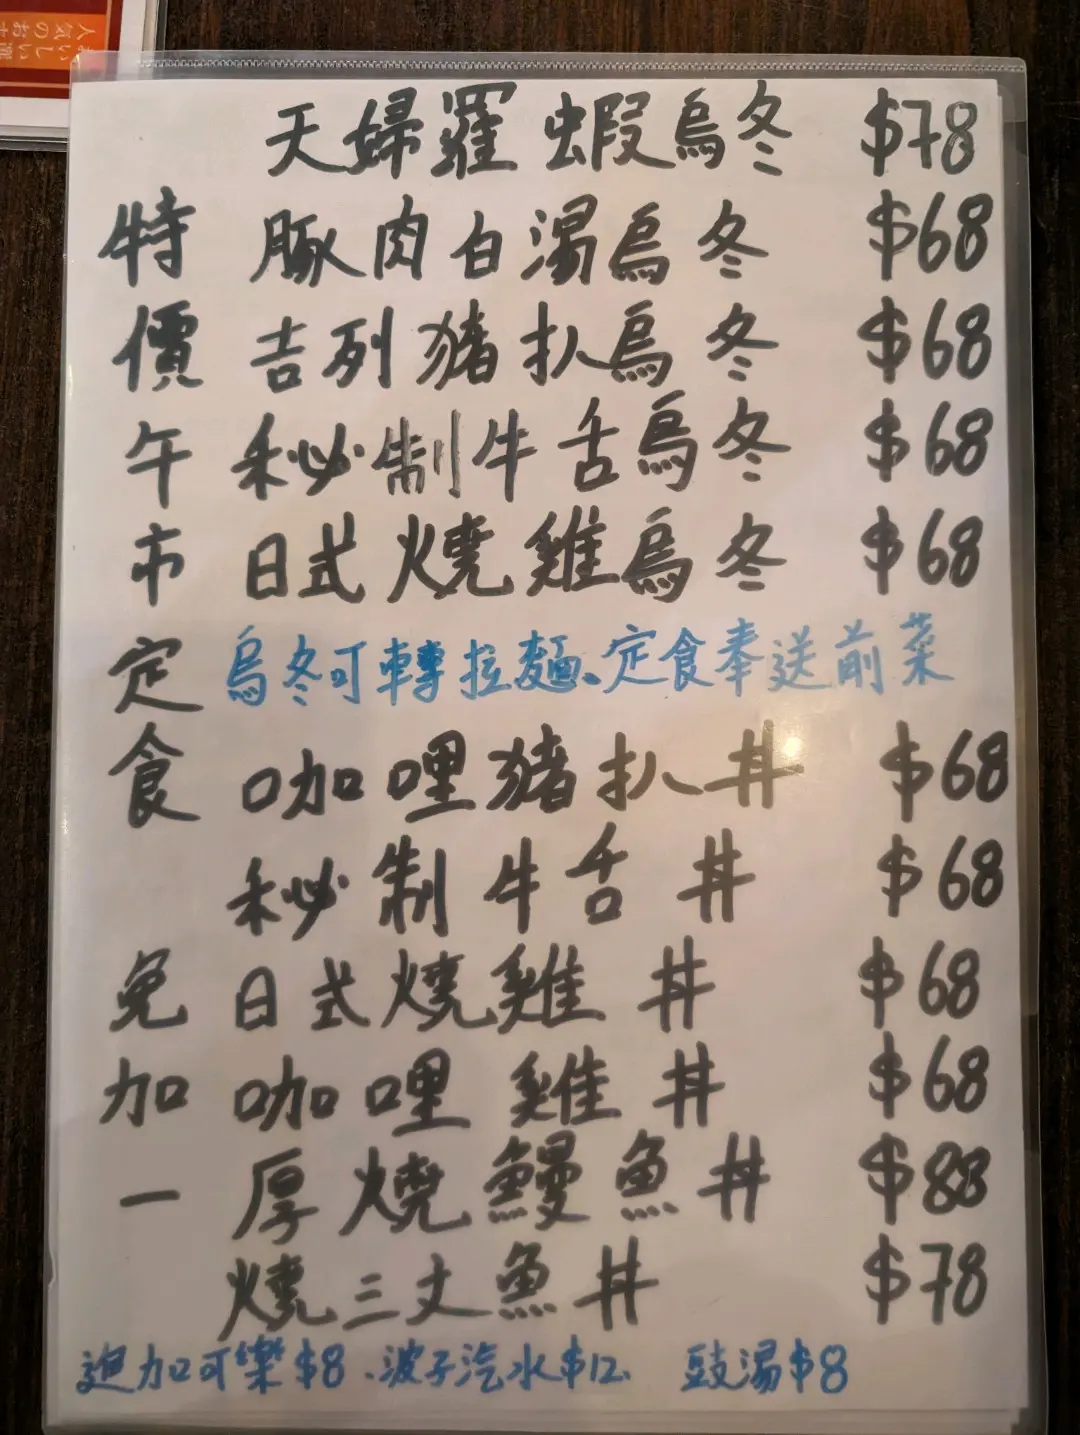 天婦羅蝦烏冬 $78
豚肉白濁烏冬 $68
吉列豬扒烏冬 $68
秘制牛舌烏冬 $68
日式燒雞烏冬 $68
烏冬可轉拉麵、定食奉送前菜
咖哩豬扒丼 $68
秘制牛舌丼 $68
日式燒雞丼 $68
咖哩雞丼 $68
厚燒鰻魚丼 $88
燒三文魚丼 $78
特價午市定食
免加一
進加可樂$8、波子汽水$12、 豉湯$8